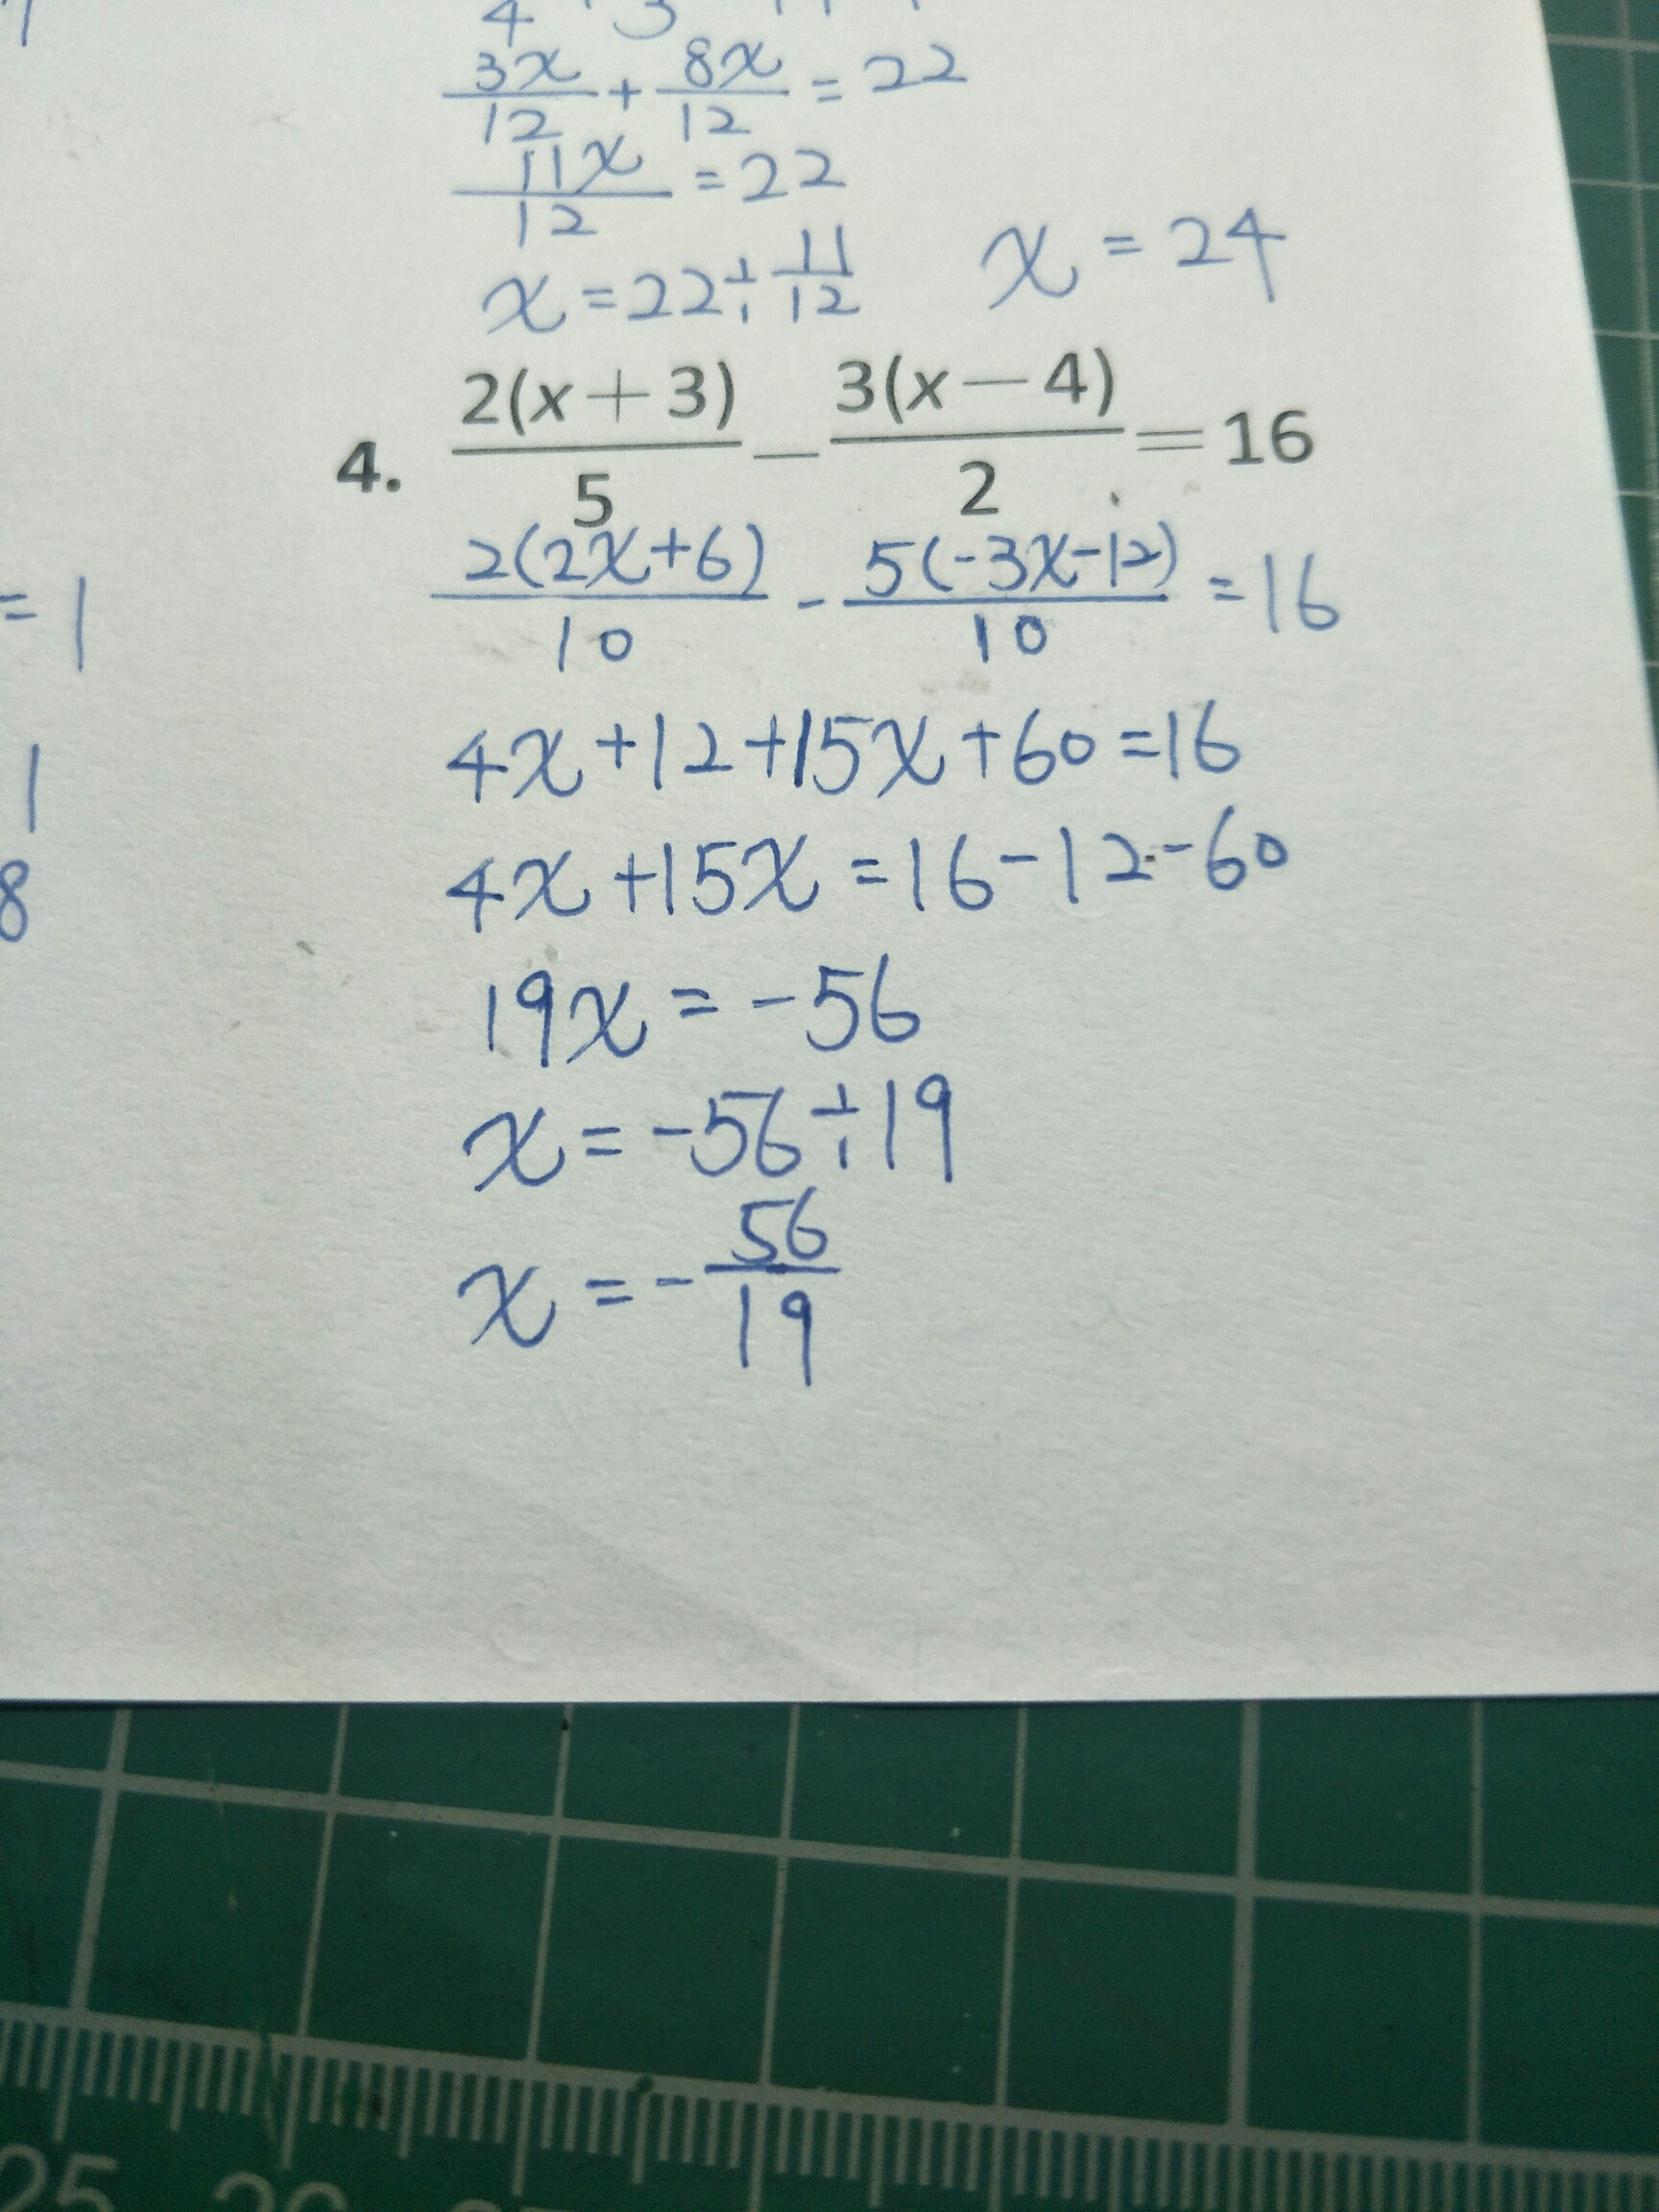 3x/12 + 8x/12 = 22
11x/12 = 22
x = 22 ÷ 11/12   x = 24
4. 2(x+3)/5 − 3(x−4)/2 = 16
2(2x+6)/10 - 5(-3x-12)/10 = 16
= 1
4x+12+15x+60=16
1
4x+15x=16-12-60
8
19x = -56
x = -56÷19
x = -56/19
25 26